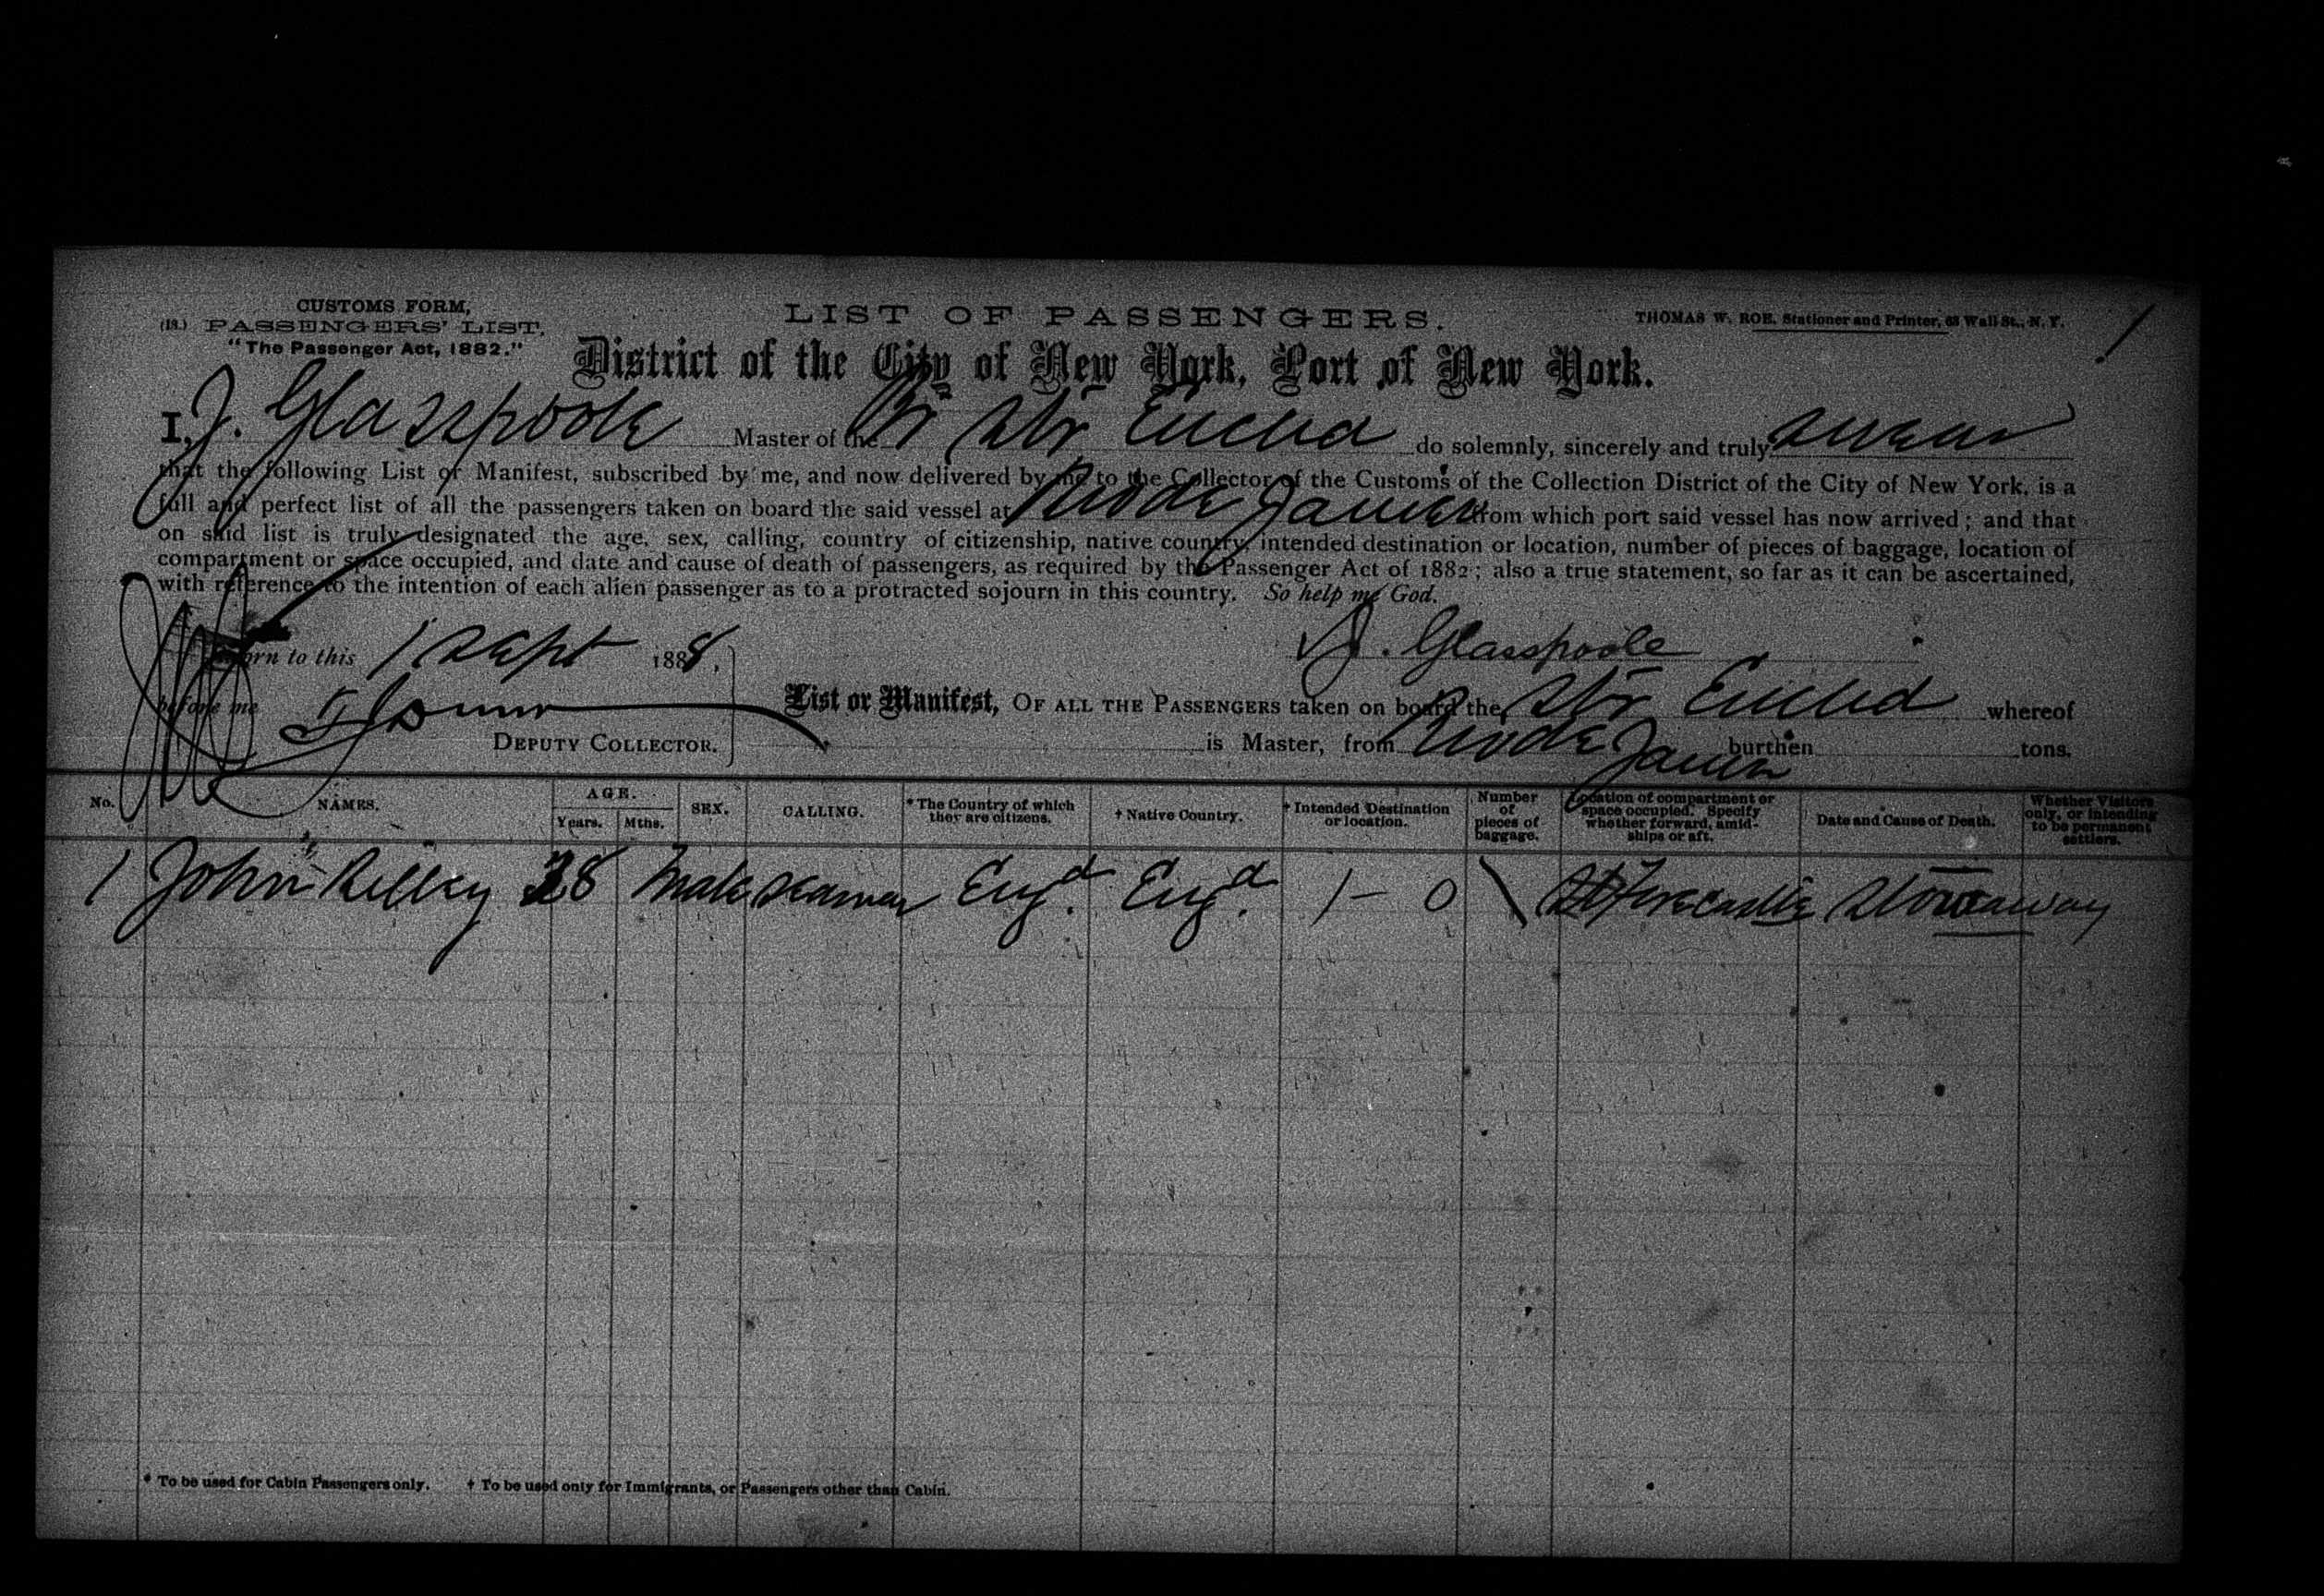 CUSTOMS FORM,
(18.) PASSENGERS' LIST.
"The Passenger Act, 1882."
LIST OF PASSENGERS.
THOMAS W. ROE, Stationer and Printer, 63 Wall St., N. Y.
1
District of the City of New York, Port of New York.
I, J. Glasspoole Master of the Br Str Euclid do solemnly, sincerely and truly swear
that the following List or Manifest, subscribed by me, and now delivered by me to the Collector of the Customs of the Collection District of the City of New York, is a
full and perfect list of all the passengers taken on board the said vessel at Riode Janeiro from which port said vessel has now arrived; and that
on said list is truly designated the age, sex, calling, country of citizenship, native country, intended destination or location, number of pieces of baggage, location of
compartment or space occupied, and date and cause of death of passengers, as required by the Passenger Act of 1882; also a true statement, so far as it can be ascertained,
with reference to the intention of each alien passenger as to a protracted sojourn in this country. So help me God.
Sworn to this 1 Sept 1888,
J. Glasspoole
before me
DEPUTY COLLECTOR.
List or Manifest, OF ALL THE PASSENGERS taken on board the Str Euclid whereof
is Master, from Riode Janeiro burthen tons.
No. NAMES. AGE. Years. Mths. SEX. CALLING. * The Country of which they are citizens. † Native Country. † Intended Destination or location. Number of pieces of baggage. Location of compartment or space occupied. Specify whether forward, amidships or aft. Date and Cause of Death. Whether Visitors only, or intending to be permanent settlers.
1 John Kelley 28 Male Seaman Engd. Engd. 1 – 0 \ Forecastle Stowaway
* To be used for Cabin Passengers only. † To be used only for Immigrants, or Passengers other than Cabin.